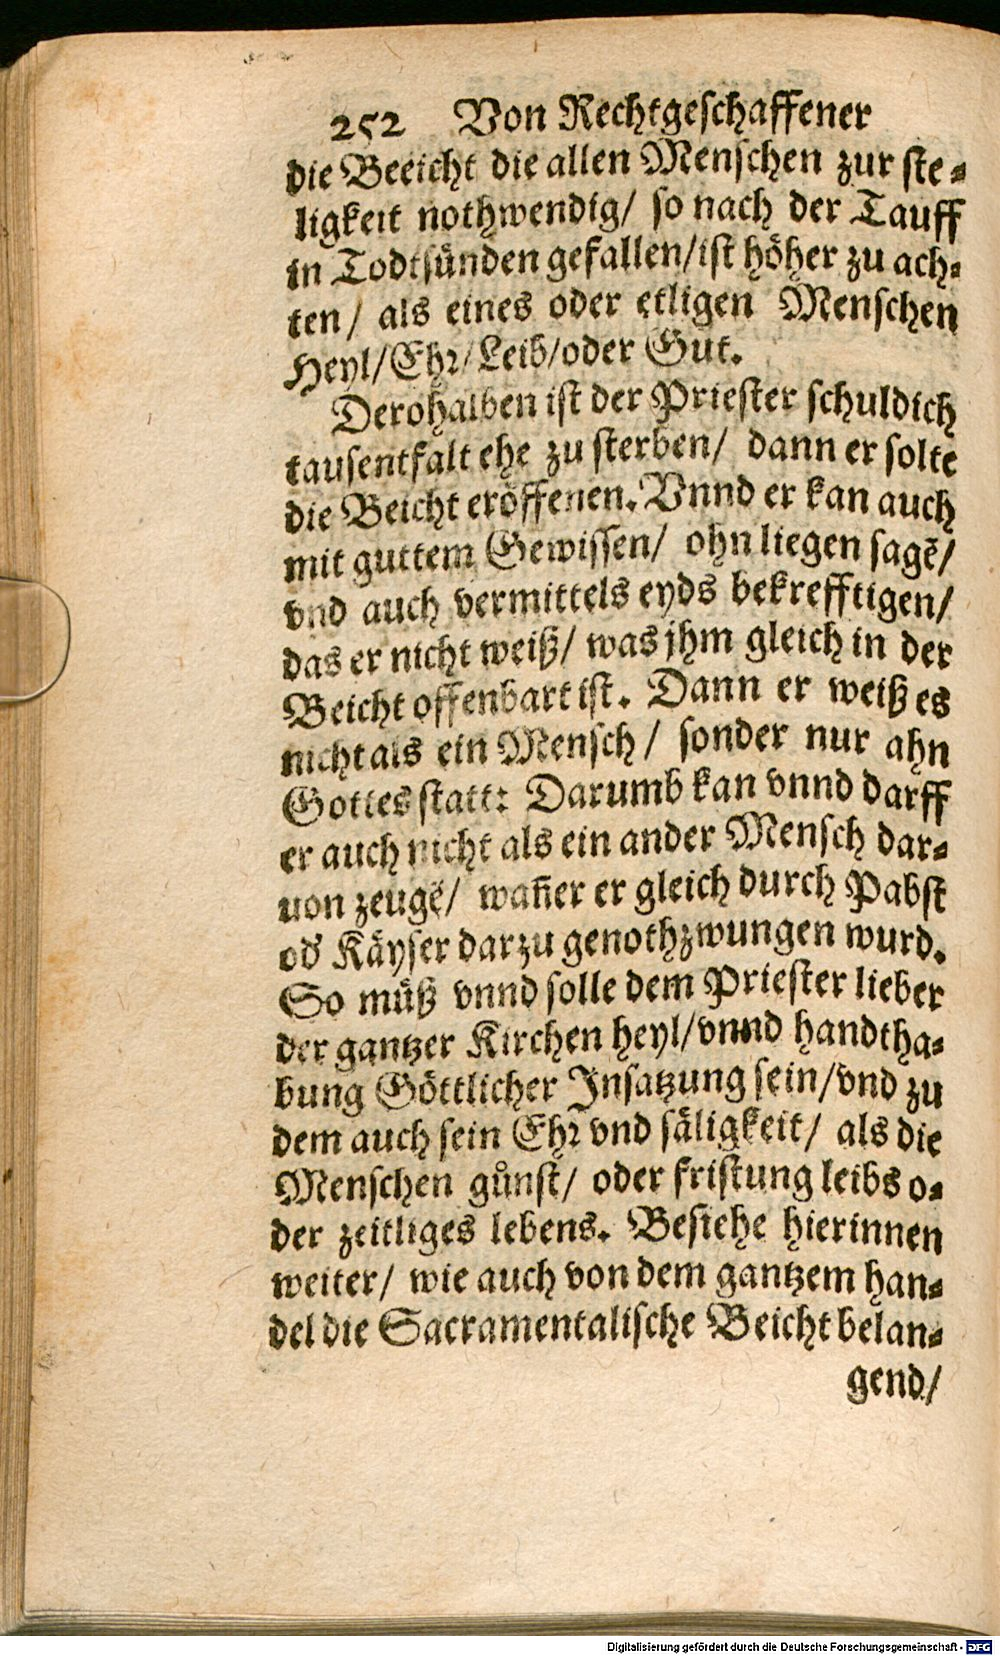 252 Von Rechtgeschaffener
die Beeicht die allen Menschen zur ste-
ligkeit nothwendig/ so nach der Tauff
in Todtsünden gefallen/ist höher zu ach-
ten/ als eines oder etligen Menschen
Heyl/Ehr/Leib/oder Gut.
Derohalben ist der Priester schuldich
tausentfalt ehe zu sterben/ dann er solte
die Beicht eröffenen. Vnnd er kan auch
mit guttem Gewissen/ ohn liegen sagẽ/
vnd auch vermittels eyds bekrefftigen/
das er nicht weiß/ was jhm gleich in der
Beicht offenbart ist. Dann er weiß es
nicht als ein Mensch/ sonder nur ahn
Gottes statt: Darumb kan vnnd darff
er auch nicht als ein ander Mensch dar-
uon zeugẽ/ wañer er gleich durch Pabst
od' Käyser darzu genothzwungen wurd.
So müß vnnd solle dem Priester lieber
der gantzer Kirchen heyl/vnnd handtha-
bung Göttlicher Insatzung sein/vnd zu
dem auch sein Ehr vnd säligkeit/ als die
Menschen gůnst/ oder fristung leibs o-
der zeitliges lebens. Besiehe hierinnen
weiter/ wie auch von dem gantzem han-
del die Sacramentalische Beicht belan-
gend/
Digitalisierung gefördert durch die Deutsche Forschungsgemeinschaft - DFG